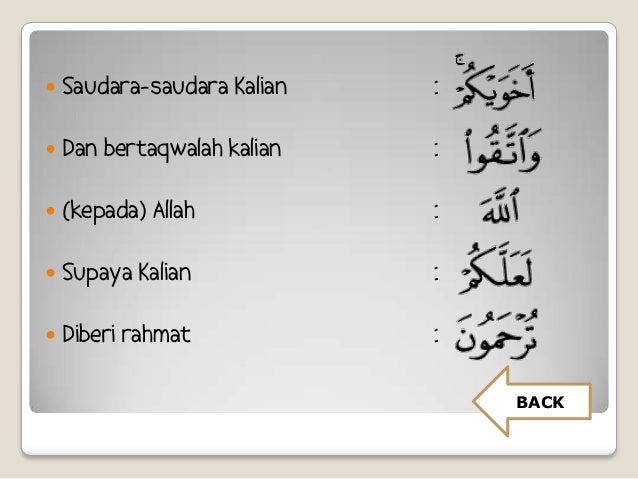 Saudara-saudara Kalian : أَخَوَيْكُمْ ۚ
Dan bertaqwalah kalian : وَٱتَّقُوا۟
(kepada) Allah : ٱللَّهَ
Supaya Kalian : لَعَلَّكُمْ
Diberi rahmat : تُرْحَمُونَ
BACK